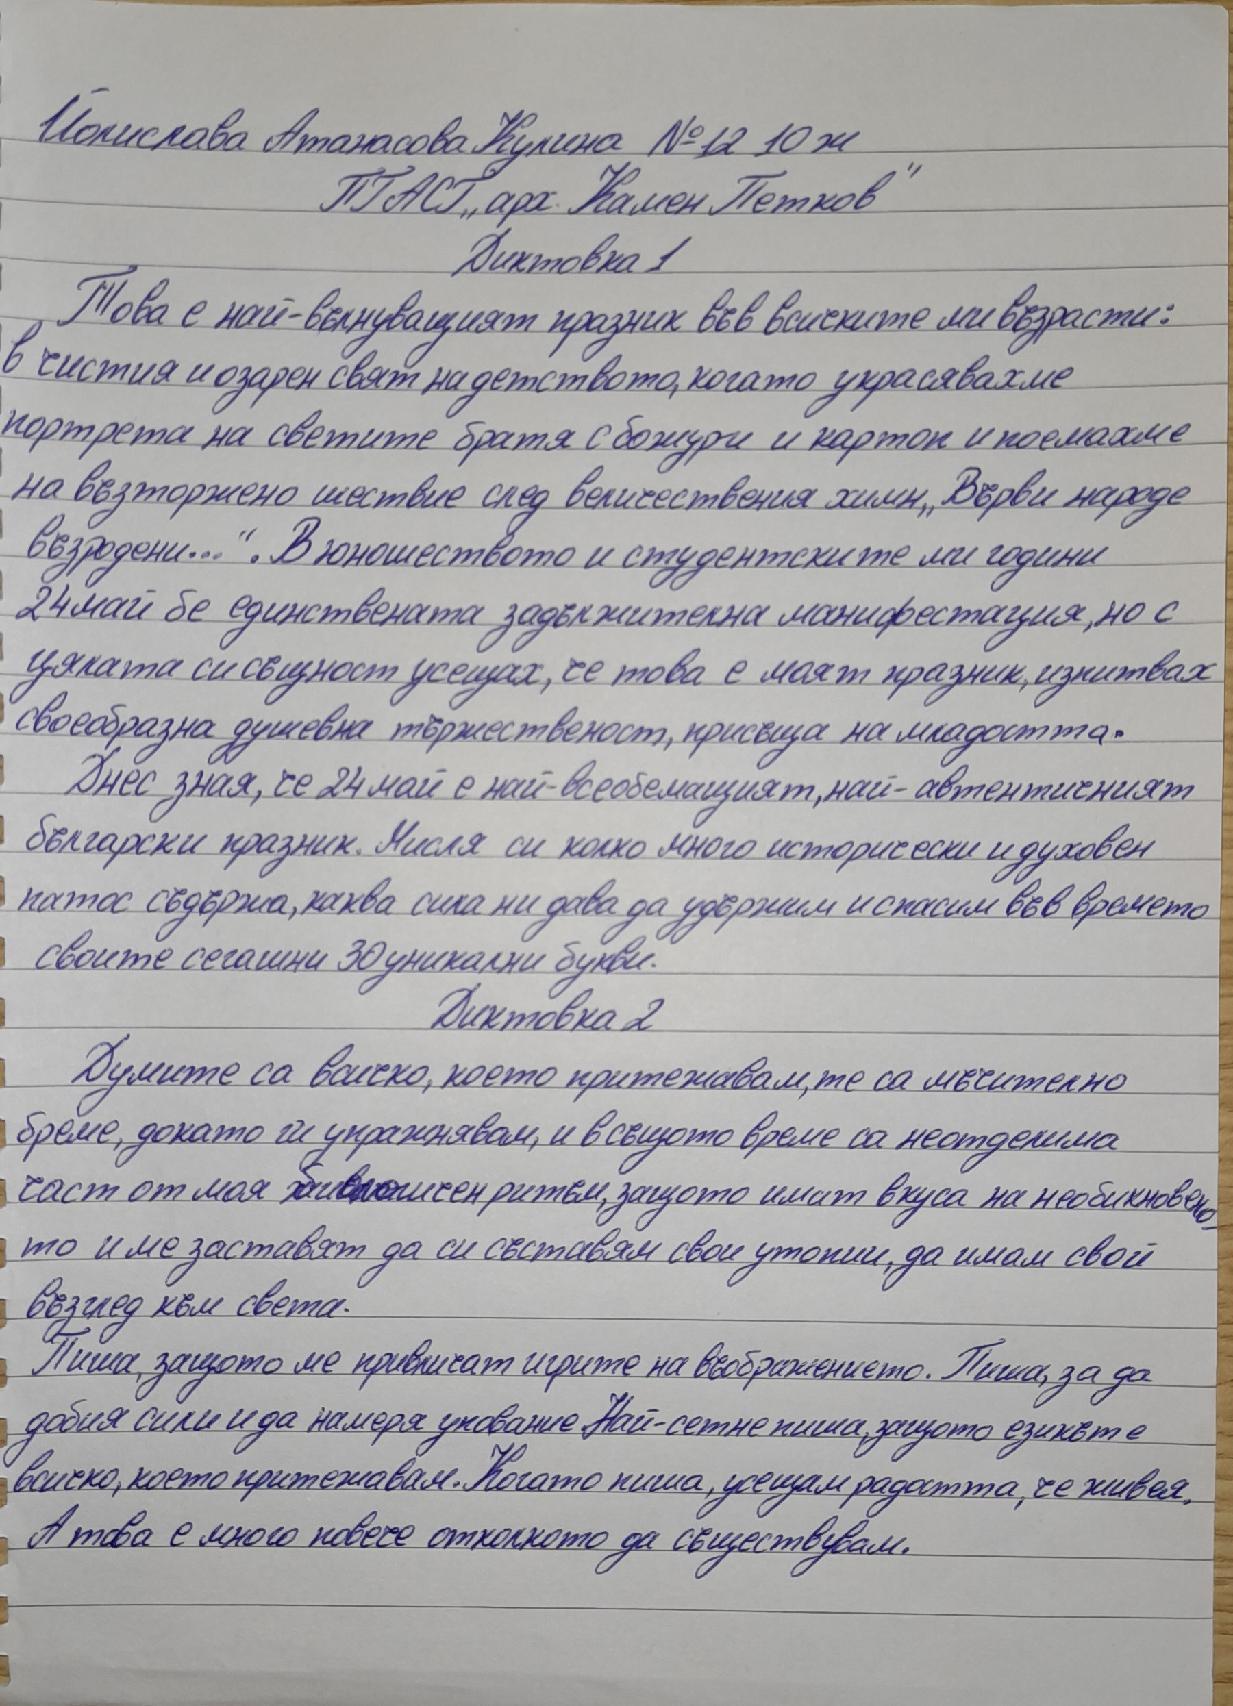 Йонислава Атанасова Кулина №12 10ж
ПГАСГ „арх. Камен Петков"
Диктовка 1
Това е най-вълнуващият празник във всичките ми възрасти:
в чистия и озарен свят на детството, когато украсявахме
портрета на светите братя с божури и картон и поемахме
на възторжено шествие след величествения химн „Върви народе
възродени...". В юношеството и студентските ми години
24 май бе единствената задължителна манифестация, но с
цялата си същност усещах, че това е моят празник, изпитвах
своеобразна душевна тържественост, присъща на младостта.
Днес зная, че 24 май е най-всеобемащият, най-автентичният
български празник. Мисля си колко много исторически и духовен
патос съдържа, каква сила ни дава да удържим и спасим във времето
своите сегашни 30 уникални букви.
Диктовка 2
Думите са всичко, което притежавам, те са мъчително
бреме, докато ги упражнявам, и в същото време са неотделима
част от моя биологичен ритъм, защото имат вкуса на необикновено-
то и ме заставят да си съставям свои утопии, да имам свой
възглед към света.
Пиша, защото ме привличат игрите на въображението. Пиша, за да
добия сили и да намеря упование. Най-сетне пиша, защото езикът е
всичко, което притежавам. Когато пиша, усещам радостта, че живея.
А това е много повече отколкото да съществувам.